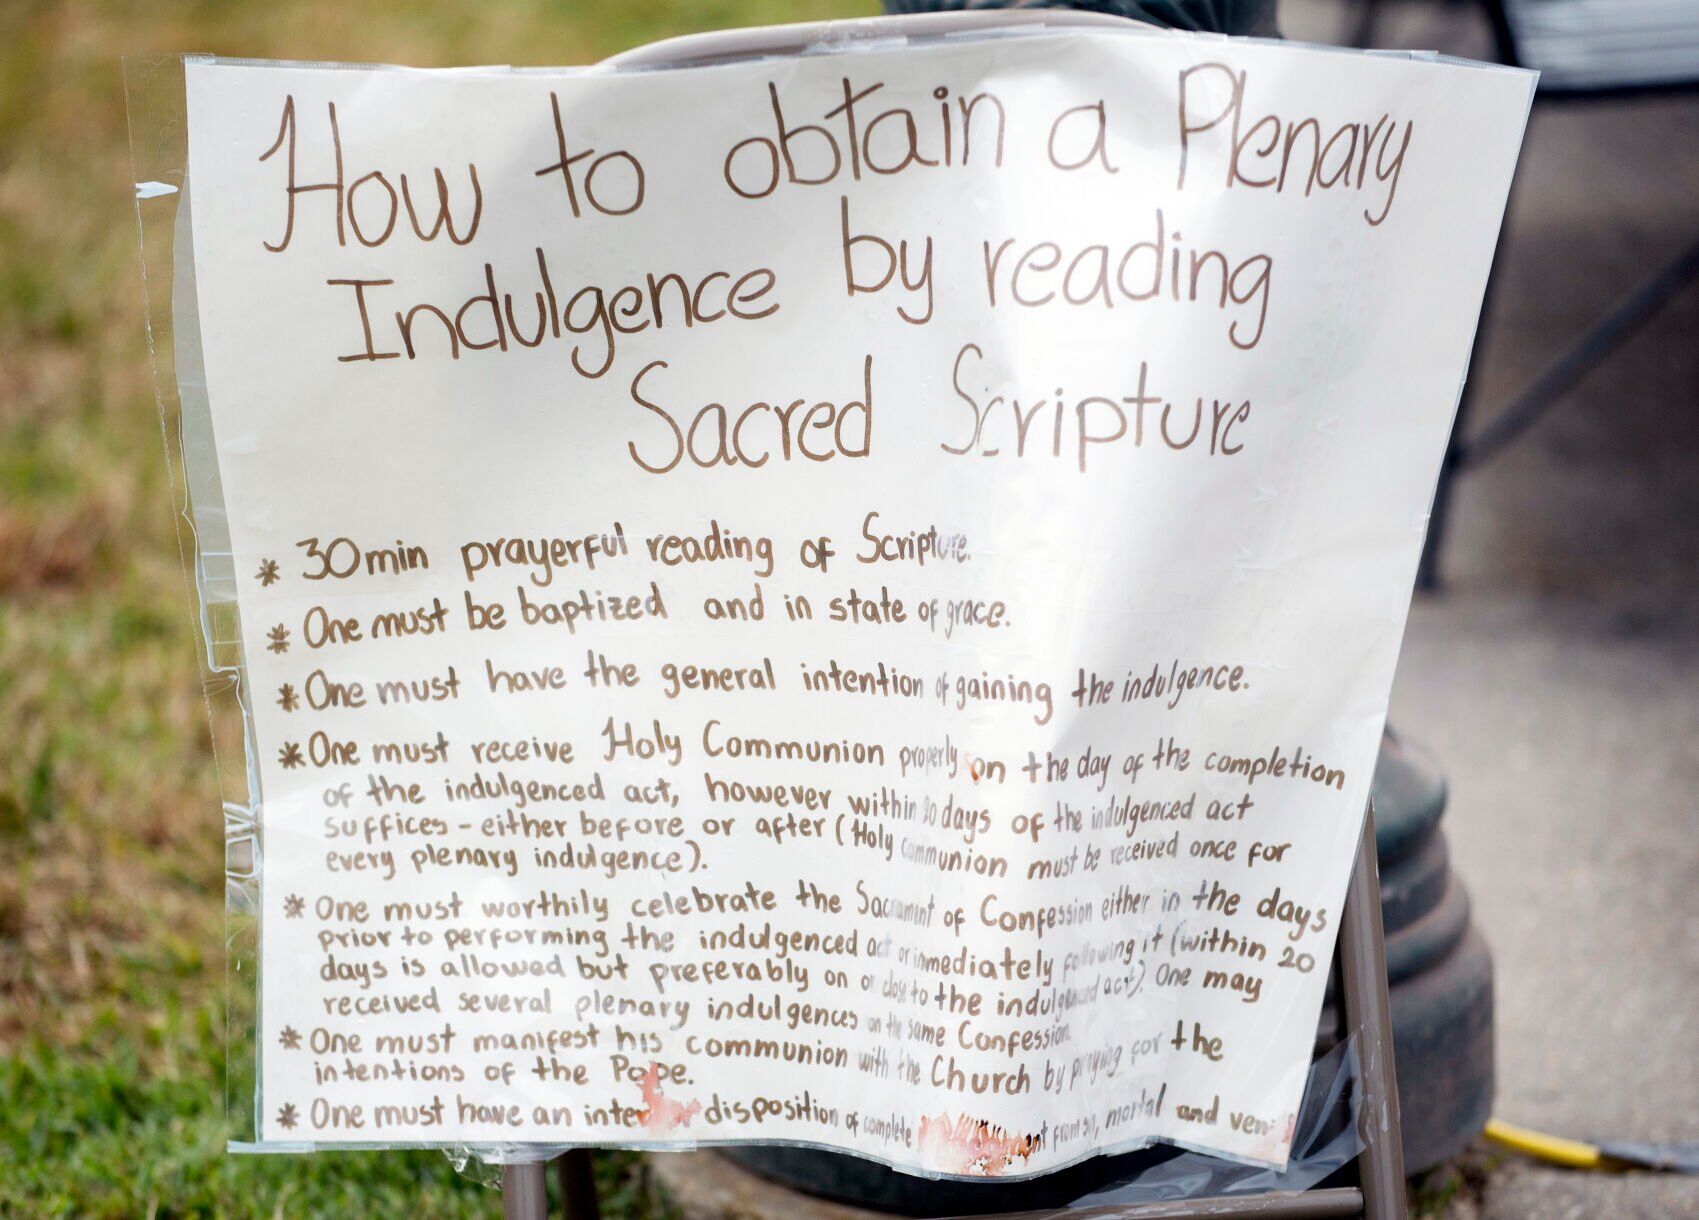 How to obtain a Plenary
Indulgence by reading
Sacred Scripture
* 30min prayerful reading of Scripture.
* One must be baptized and in state of grace.
* One must have the general intention of gaining the indulgence.
* One must receive Holy Communion properly on the day of the completion
of the indulgenced act, however within 20 days of the indulgenced act
suffices - either before or after (Holy Communion must be received once for
every plenary indulgence).
* One must worthily celebrate the Sacrament of Confession either in the days
prior to performing the indulgenced act or immediately following it (within 20
days is allowed but preferably on or close to the indulgenced act). One may
received several plenary indulgences on the same Confession.
* One must manifest his communion with the Church by praying for the
intentions of the Pope.
* One must have an disposition of complete from sin, mortal and